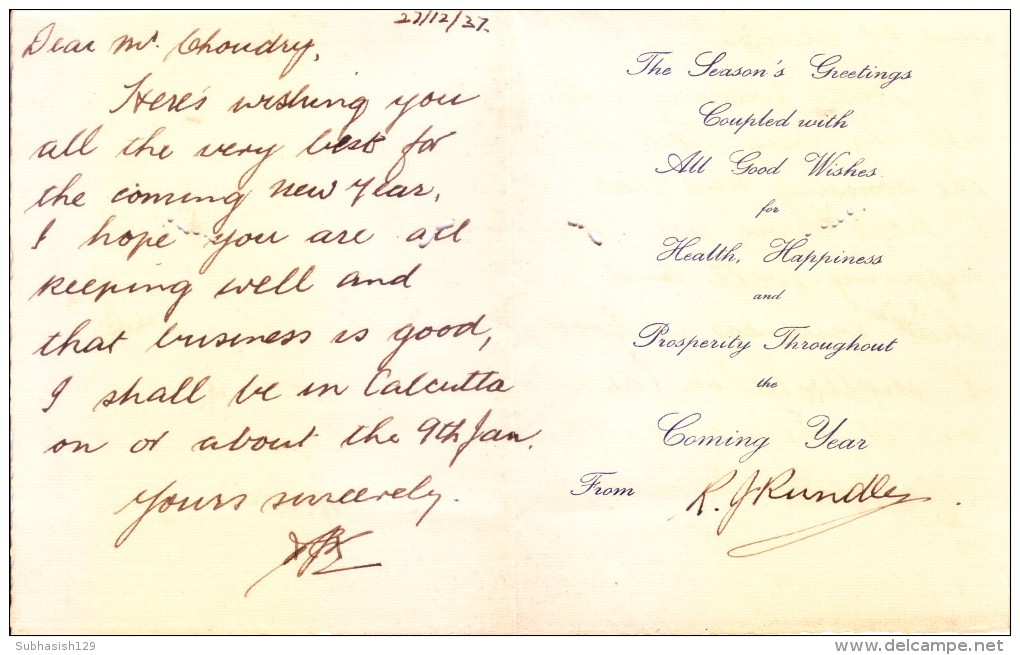 27/12/37.
Dear Mr. Choudry,
Here's wishing you
all the very best for
the coming new year,
I hope you are all
keeping well and
that business is good,
I shall be in Calcutta
on or about the 9th Jan.
Yours sincerely.
The Season's Greetings
Coupled with
All Good Wishes
for
Health, Happiness
and
Prosperity Throughout
the
Coming Year
From R. J Rundle
Subhasish129
delcampe.net